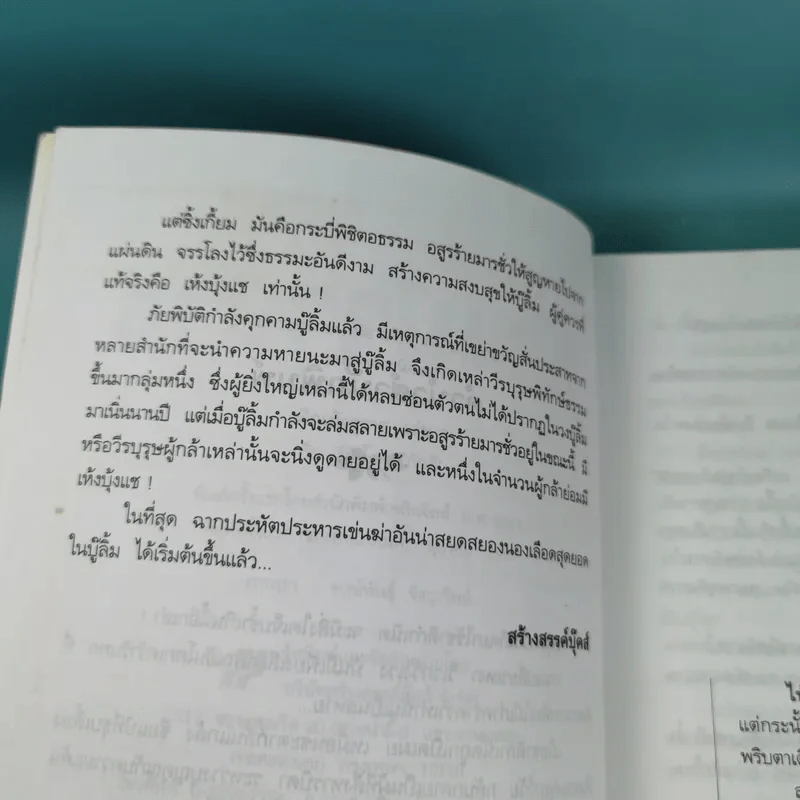 แต่ซิ้งเกี้ยม มันคือกระบี่พิชิตอธรรม อสูรร้ายมารชั่วให้สูญหายไปจาก
แผ่นดิน จรรโลงไว้ซึ่งธรรมะอันดีงาม สร้างความสงบสุขให้บู๊ลิ้ม ผู้คู่ควรที่
แท้จริงคือ เห้งบุ้งแช เท่านั้น !
ภัยพิบัติกำลังคุกคามบู๊ลิ้มแล้ว มีเหตุการณ์ที่เขย่าขวัญสั่นประสาทจาก
หลายสำนักที่จะนำความหายนะมาสู่บู๊ลิ้ม จึงเกิดเหล่าวีรบุรุษพิทักษ์ธรรม
ขึ้นมากลุ่มหนึ่ง ซึ่งผู้ยิ่งใหญ่เหล่านี้ได้หลบซ่อนตัวตนไม่ได้ปรากฏในวงบู๊ลิ้ม
มาเนิ่นนานปี แต่เมื่อบู๊ลิ้มกำลังจะล่มสลายเพราะอสูรร้ายมารชั่วอยู่ในขณะนี้ มี
หรือวีรบุรุษผู้กล้าเหล่านั้นจะนิ่งดูดายอยู่ได้ และหนึ่งในจำนวนผู้กล้าย่อมมี
เห้งบุ้งแช !
ในที่สุด ฉากประหัตประหารเข่นฆ่าอันน่าสยดสยองนองเลือดสุดยอด
ในบู๊ลิ้ม ได้เริ่มต้นขึ้นแล้ว...
สร้างสรรค์บุ๊คส์
แต่กระนั้
พริบตาเดี